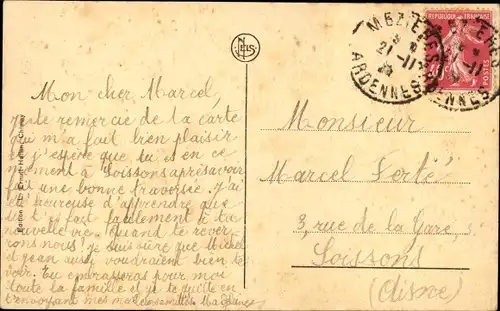 Mon cher Marcel,
je te remercie de la carte
qui m'a fait bien plaisir
et j'espère que tu es en ce
moment à Soissons après avoir
fait une bonne traversée. J'ai
été heureuse d'apprendre que
tu t'es fait facilement à ta
nouvelle vie. Quand te rever-
rons nous? Je suis sûre que Michel
et Jean aussi voudraient bien te
voir. Tu embrasseras pour moi
toute la famille et je te quitte en
t'envoyant mes
Edition
NELS
REPUBLIQUE FRANÇAISE
POSTES
MEZIERES
21-11
ARDENNES
MEZIERES
ARDENNES
Monsieur
Marcel Ferté
3, rue de la Gare,
Soissons
(Aisne)